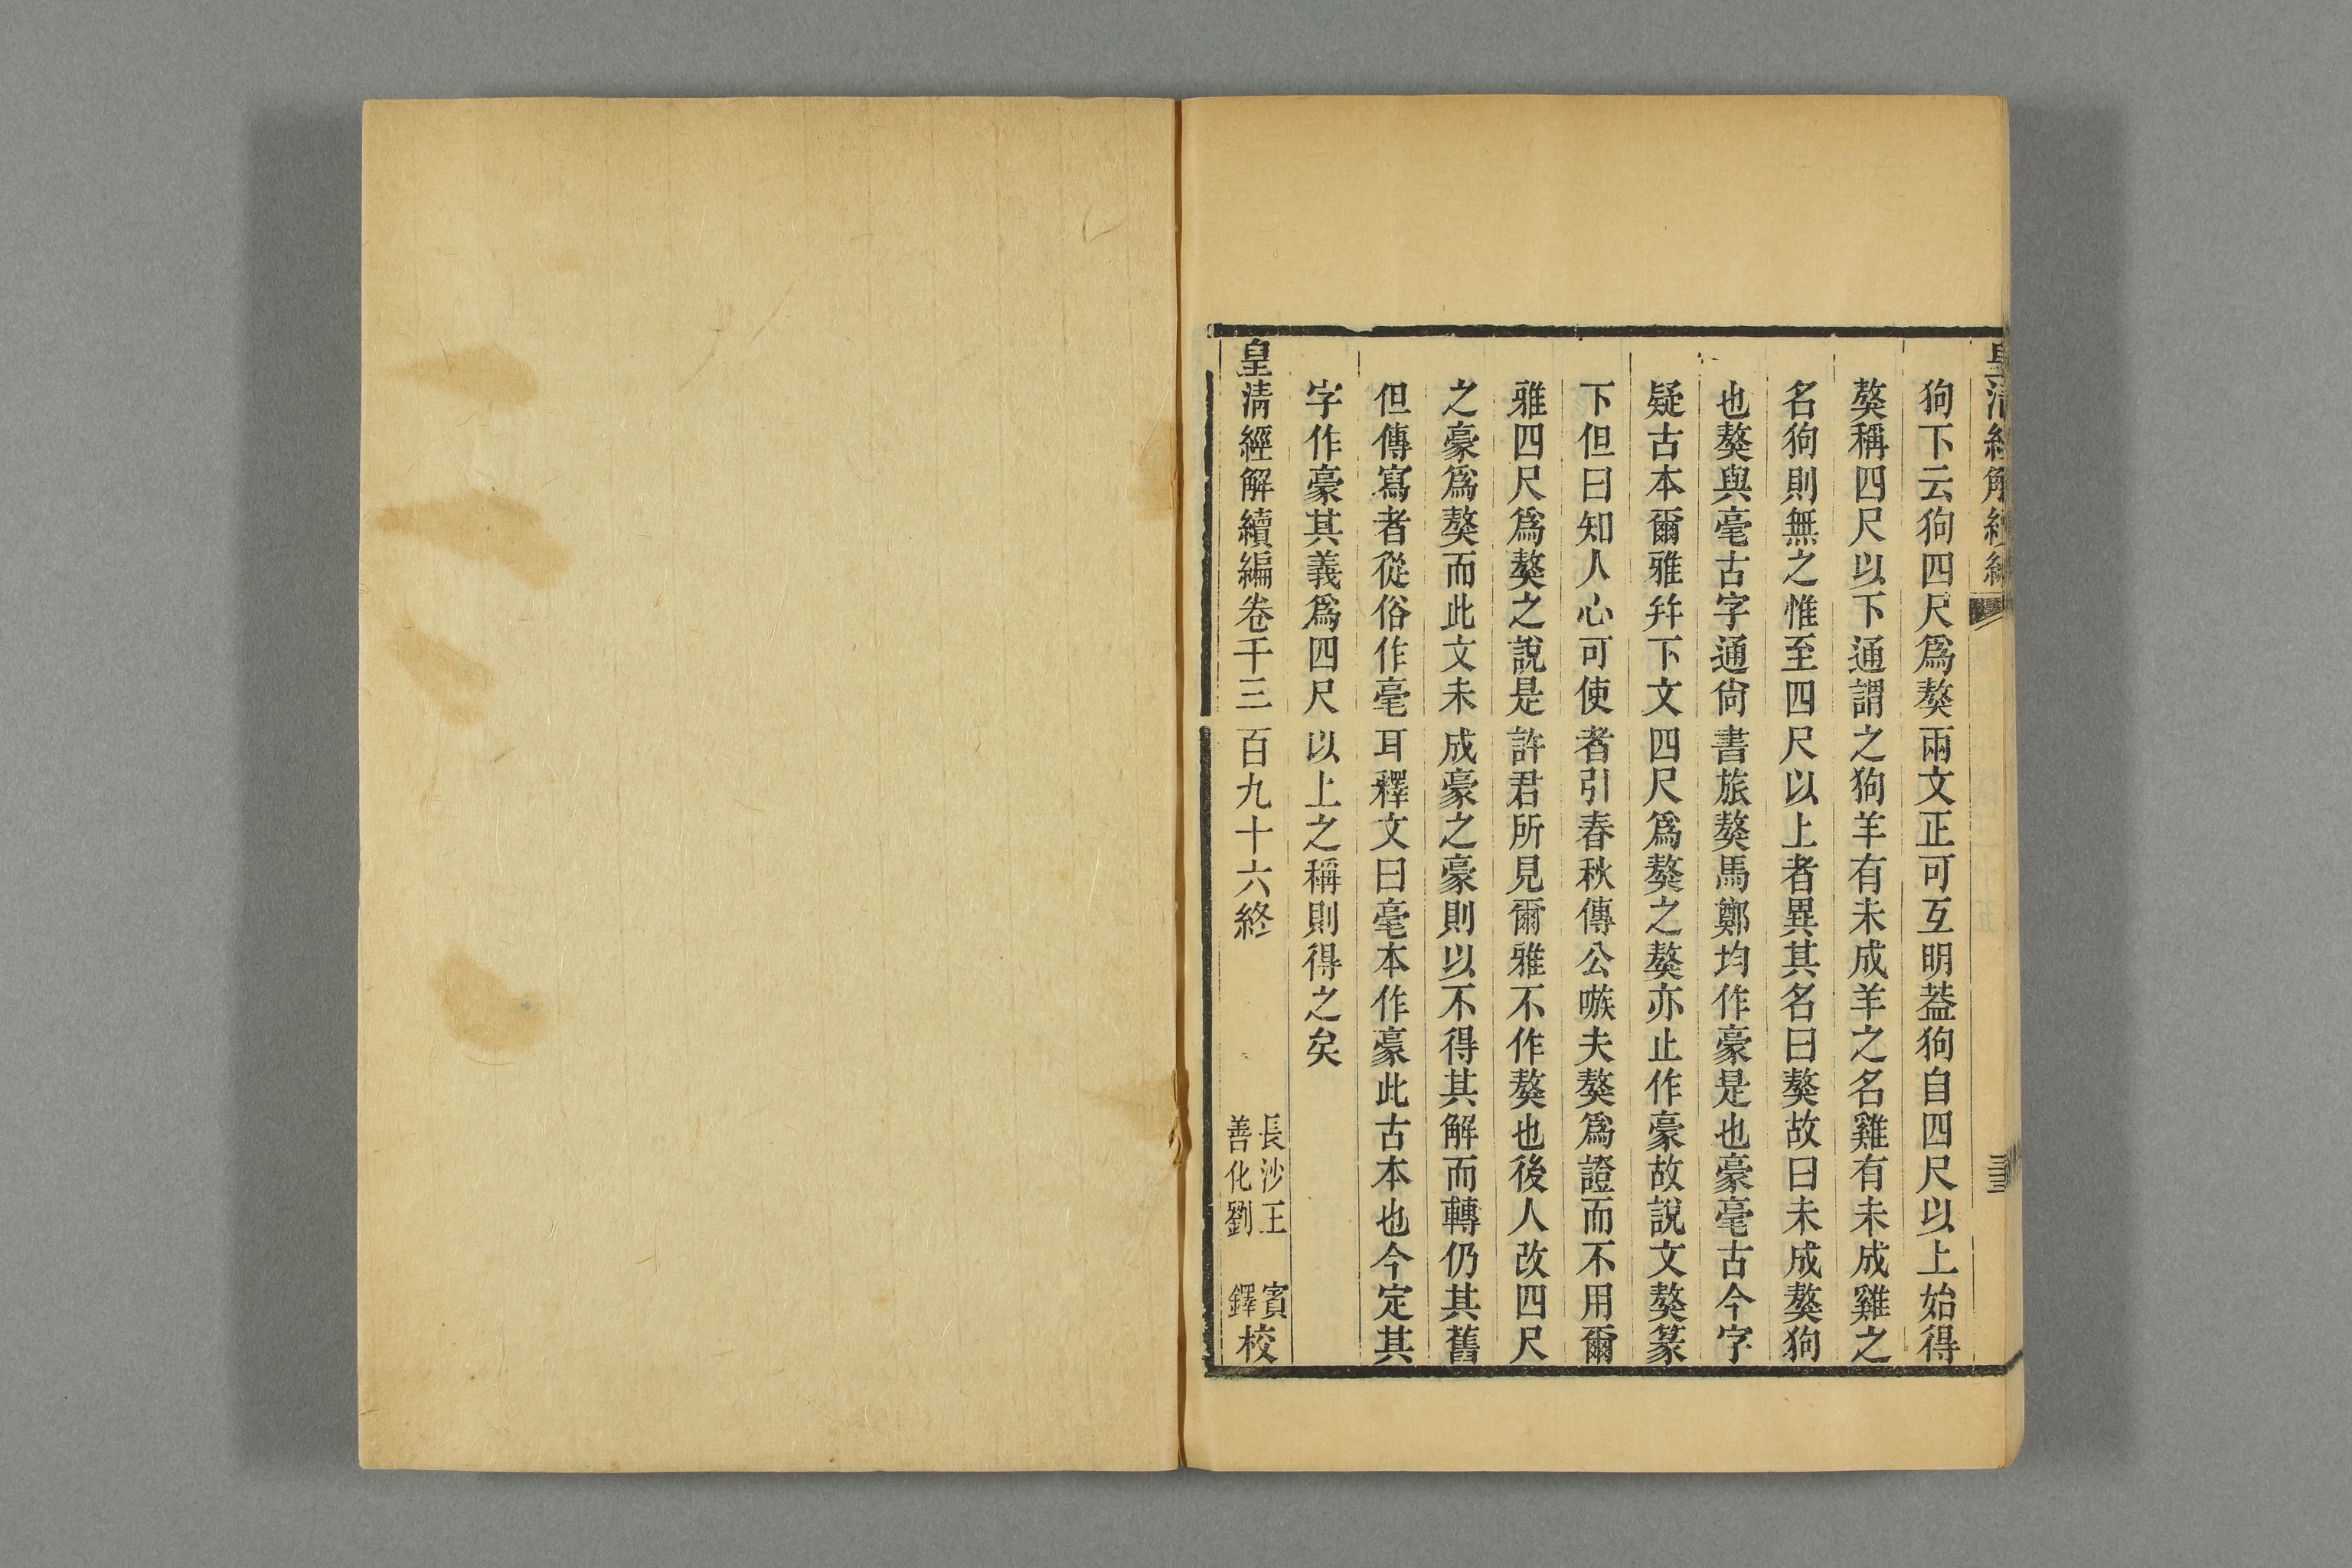 狗下云狗四尺爲獒兩文正可互明葢狗自四尺以上始得
獒稱四尺以下通謂之狗羊有未成羊之名雞有未成雞之
名狗則無之惟至四尺以上者異其名曰獒故曰未成獒狗
也獒與毫古字通尙書旅獒馬鄭均作豪是也豪毫古今字
疑古本爾雅幷下文四尺爲獒之獒亦止作豪故說文獒篆
下但曰知人心可使者引春秋傳公嗾夫獒爲證而不用爾
雅四尺爲獒之說是許君所見爾雅不作獒也後人改四尺
之豪爲獒而此文未成豪之豪則以不得其解而轉仍其舊
但傳寫者從俗作毫耳釋文曰毫本作豪此古本也今定其
字作豪其義爲四尺以上之稱則得之矣
皇淸經解續編卷千三百九十六終
長沙王 賓
善化劉 鐸 校